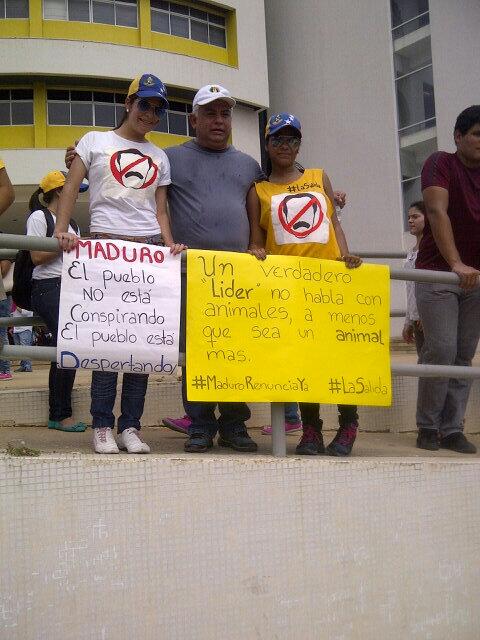 #LaSalida
MADURO
El pueblo
NO está
Conspirando
El pueblo está
Despertando
Un verdadero
"Lider" no habla con
animales, a menos
que sea un animal
mas.
#MaduroRenunciaYa #LaSalida